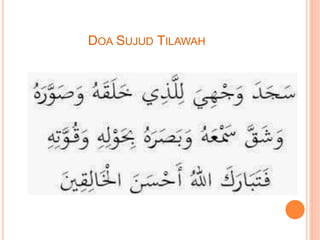 DOA SUJUD TILAWAH
سَجَدَ وَجْهِيَ لِلَّذِي خَلَقَهُ وَصَوَّرَهُ
وَشَقَّ سَمْعَهُ وَبَصَرَهُ بِحَوْلِهِ وَقُوَّتِهِ
فَتَبَارَكَ اللهُ أَحْسَنَ الْخَالِقِينَ